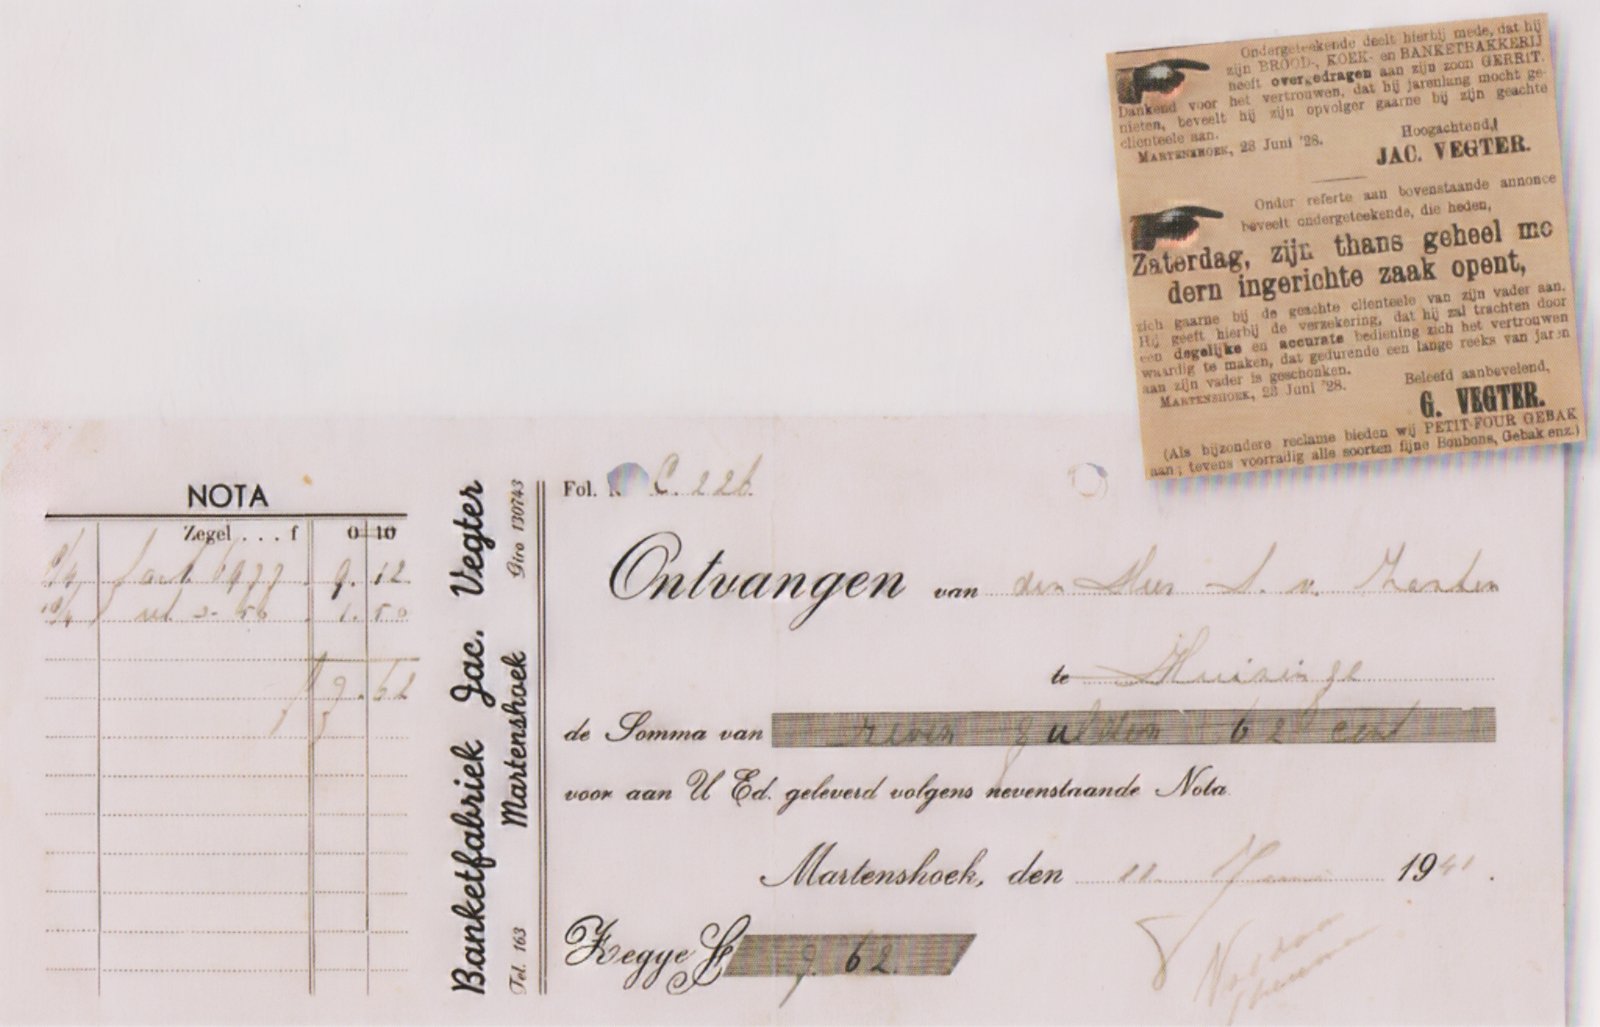 Ondergeteekende deelt hierbij mede, dat hij
zijn BROOD-, KOEK- en BANKETBAKKERIJ
heeft overgedragen aan zijn zoon GERRIT.
Dankend voor het vertrouwen, dat hij jarenlang mocht ge-
nieten, beveelt hij zijn opvolger gaarne bij zijn geachte
clienteele aan.
Hoogachtend,
MARTENSHOEK, 28 Juni '28.
JAC. VEGTER.
Onder referte aan bovenstaande annonce
beveelt ondergeteekende, die heden,
Zaterdag, zijn thans geheel mo
dern ingerichte zaak opent,
zich gaarne bij de geachte clienteele van zijn vader aan.
Hij geeft hierbij de verzekering, dat hij zal trachten door
een degelijke en accurate bediening zich het vertrouwen
waardig te maken, dat gedurende een lange reeks van jaren
aan zijn vader is geschonken.
Beleefd aanbevelend,
MARTENSHOEK, 28 Juni '28.
G. VEGTER.
(Als bijzondere reclame bieden wij PETIT-FOUR GEBAK
aan; tevens voorradig alle soorten fijne Bonbons, Gebak enz.)
NOTA
Zegel . . . f 0 10
9. 12
1. 50
9. 62
Banketfabriek Jac. Vegter
Tel. 163 Martenshoek Giro 130743
Fol. C. 226
Ontvangen van den Heer v.
te Huizinge
de Somma van gulden 62 cent
voor aan U Ed. geleverd volgens nevenstaande Nota
Martenshoek, den 1941.
Zegge f 9. 62.